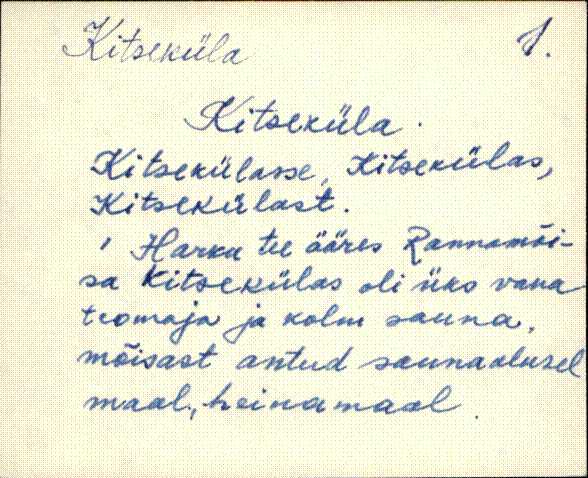 Kitseküla 1.
Kitseküla.
Kitsekülasse, Kitsekülas,
Kitsekülast.
' Harku tee ääres Rannamõi-
sa Kitsekülas oli üks vana
teomaja ja kolm sauna,
mõisast antud saunaalusel
maal, heinamaal.